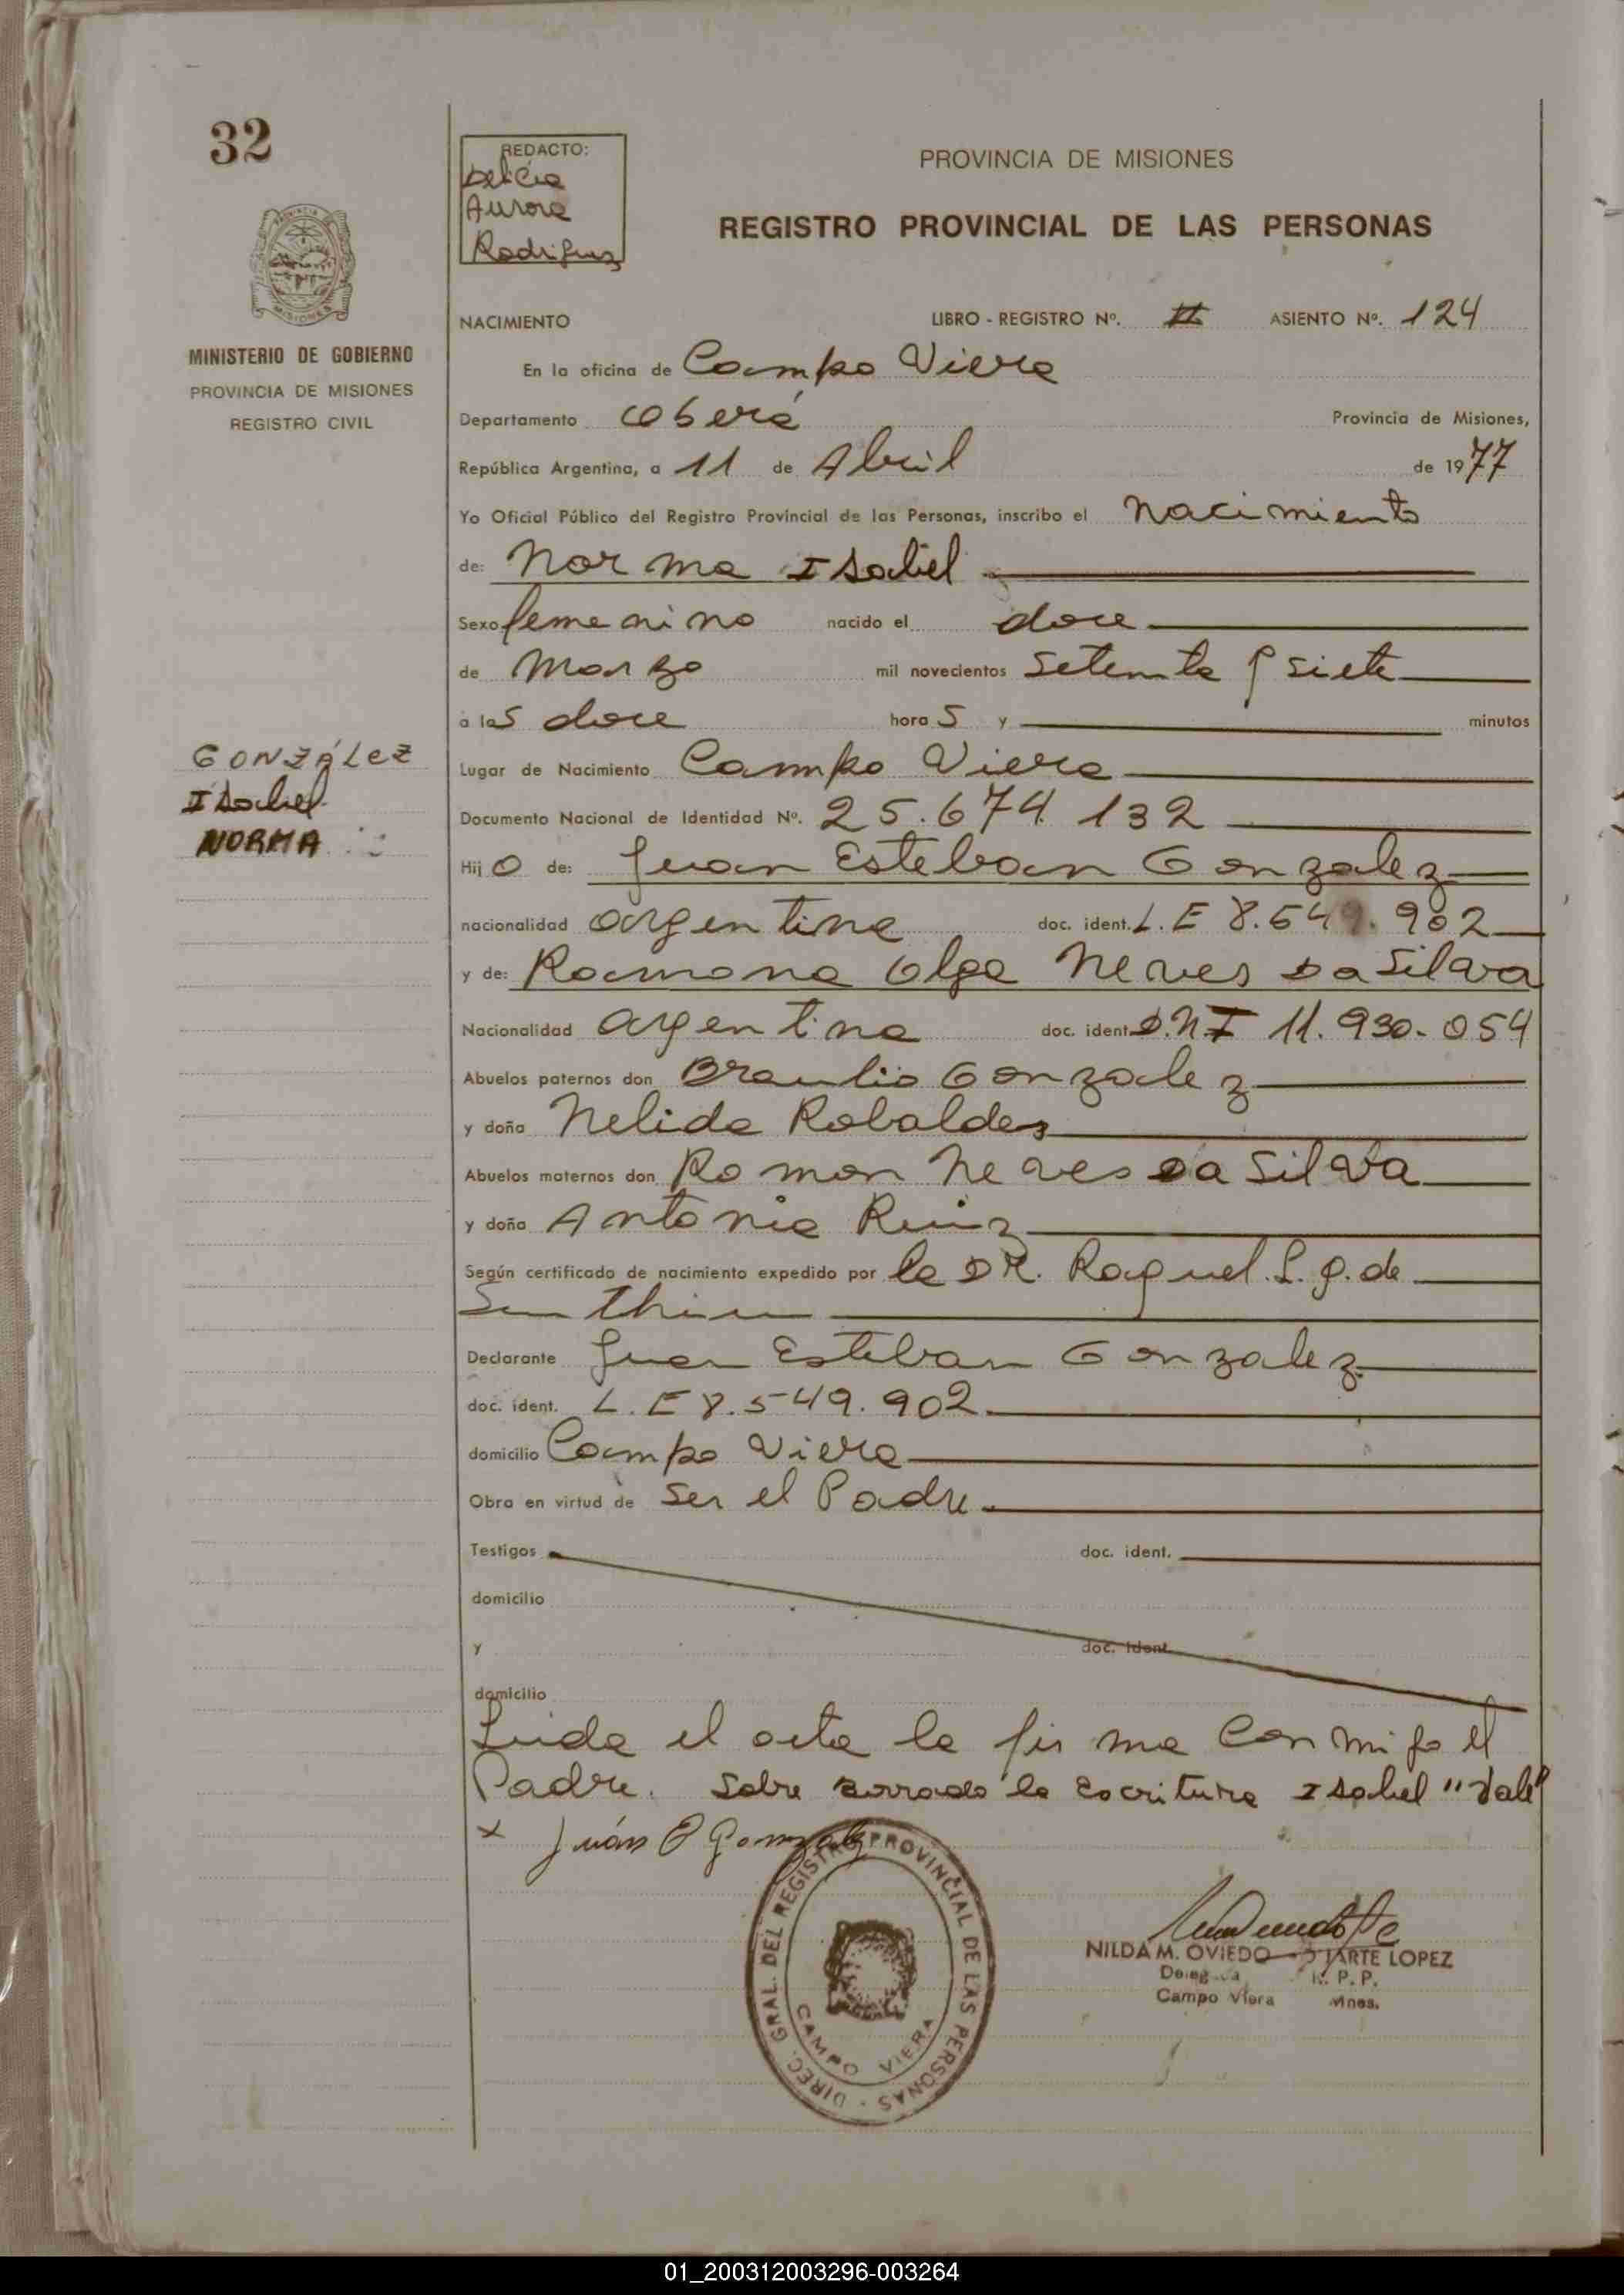 32
REDACTO:
Delicia
Aurora
Rodriguez
PROVINCIA DE MISIONES
REGISTRO PROVINCIAL DE LAS PERSONAS
MINISTERIO DE GOBIERNO
PROVINCIA DE MISIONES
REGISTRO CIVIL
NACIMIENTO LIBRO - REGISTRO Nº. II ASIENTO Nº. 124
En la oficina de Campo Viera
Departamento Oberá Provincia de Misiones,
República Argentina, a 11 de Abril de 1977
Yo Oficial Público del Registro Provincial de las Personas, inscribo el Nacimiento
de: Norma Isabel
Sexo femenino nacido el doce
de Marzo mil novecientos setenta y siete
a las doce horas y minutos
GONZÁLEZ
Isabel
NORMA
Lugar de Nacimiento Campo Viera
Documento Nacional de Identidad Nº. 25.674.132
Hijo de: Juan Esteban Gonzalez
nacionalidad argentina doc. ident. L.E 8.549.902
y de: Ramona Olga Neves Da Silva
Nacionalidad argentina doc. ident. D.N.I 11.930.054
Abuelos paternos don Braulio Gonzalez
y doña Nelida Robaldez
Abuelos maternos don Ramon Neves Da Silva
y doña Antonia Ruiz
Según certificado de nacimiento expedido por la DR. Raquel. L. g. de
Declarante Juan Esteban Gonzalez
doc. ident. L.E 8.549.902.
domicilio Campo Viera
Obra en virtud de ser el Padre
Testigos doc. ident.
domicilio
y doc. ident.
domicilio
Leida el acta la firma conmigo el
Padre. Sobre borrado la escritura Isabel "Vale"
x Juán E Gonzalez
DIREC. GRAL. DEL REGISTRO PROVINCIAL DE LAS PERSONAS
CAMPO VIERA
NILDA M. OVIEDO DUARTE LOPEZ
Delegada R. P. P.
Campo Viera Mnes.
01_200312003296-003264